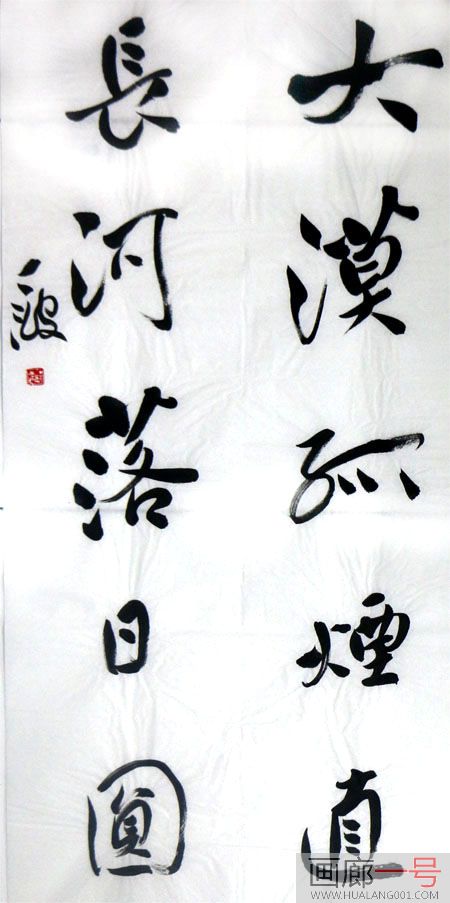 大漠孤煙直
長河落日圓
画廊一号
WWW.HUALANG001.COM